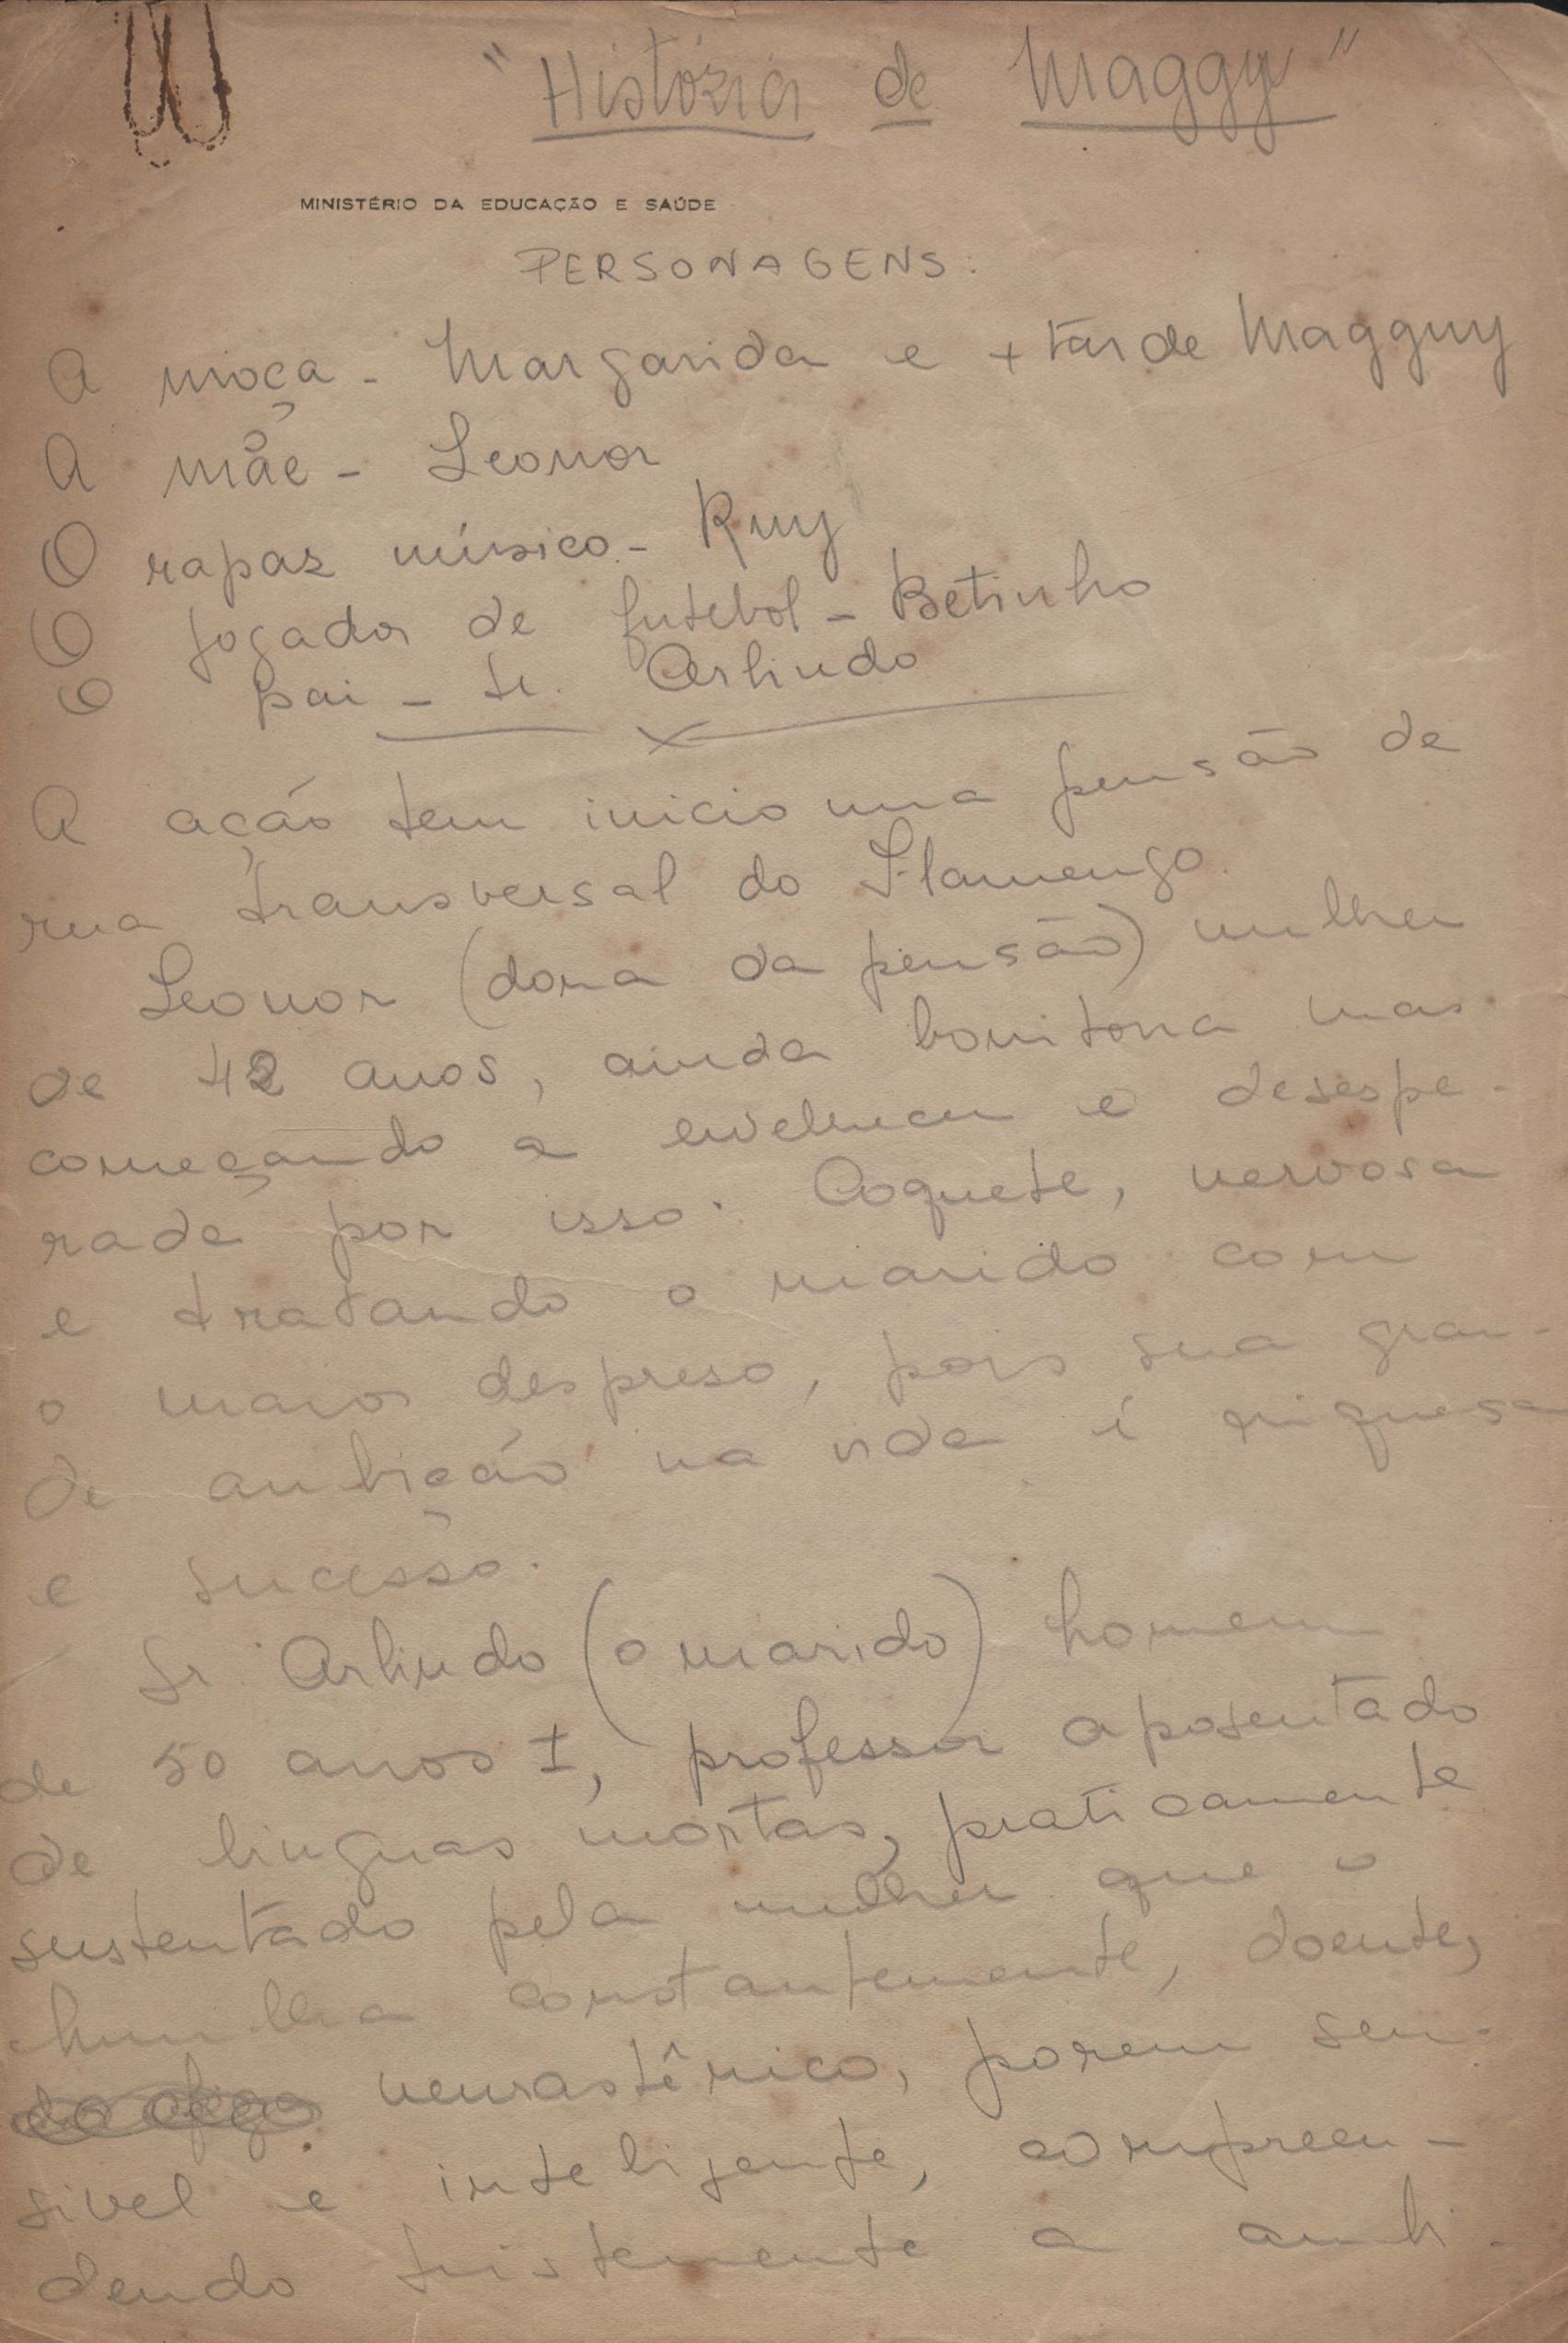 "História de Maggy"
MINISTÉRIO DA EDUCAÇÃO E SAÚDE
PERSONAGENS:
A moça - Margarida e + tarde Magguy
A mãe - Leonor
O rapaz músico - Ruy
O jogador de futebol - Betinho
O pai - Sr. Arlindo
A ação tem inicio numa pensão de
rua transversal do Flamengo.
Leonor (dona da pensão) mulher
de 42 anos, ainda bonitona mas
começando a envelhecer e desespe-
rada por isso. Coquete, nervosa
e tratando o marido com
o maior despreso, pois sua gran-
de ambição na vida é riquesa
e sucesso.
Sr. Arlindo (o marido) homem
de 50 anos ±, professor aposentado
de linguas mortas, praticamente
sustentado pela mulher que o
humilha constantemente, doente,
neurastênico, porem sen-
sivel e inteligente, compreen-
dendo tristemente a ambi-